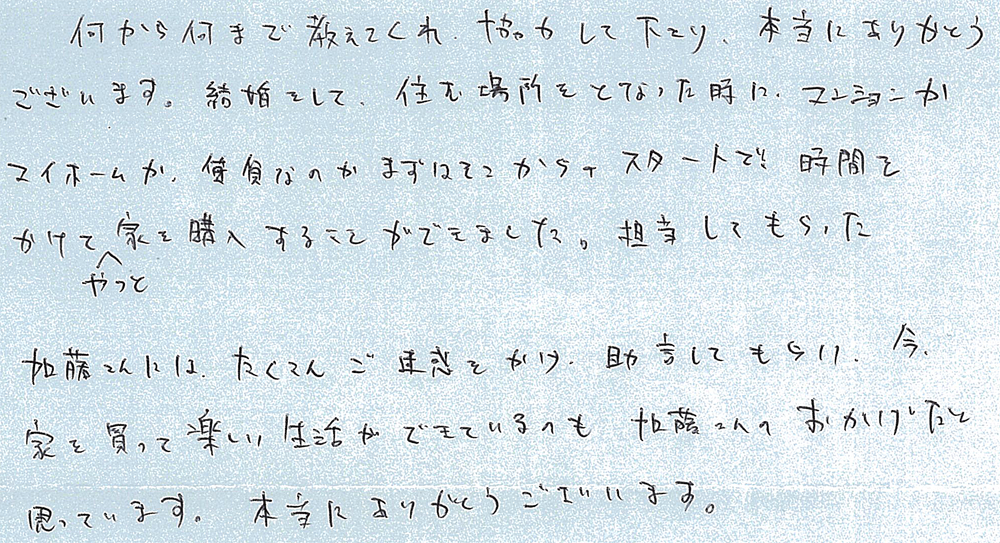 何から何まで教えてくれ、協力して下さり、本当にありがとう
ございます。結婚をして、住む場所をとなった時に、マンションか
マイホームか、賃貸なのかまずはそこからのスタートで!! 時間を
かけて家を購入することができました。担当してもらった
やっと
加藤さんには、たくさんご迷惑をかけ、助言してもらい、今、
家を買って楽しい生活ができているのも加藤さんのおかげだと
思っています。本当にありがとうございます。